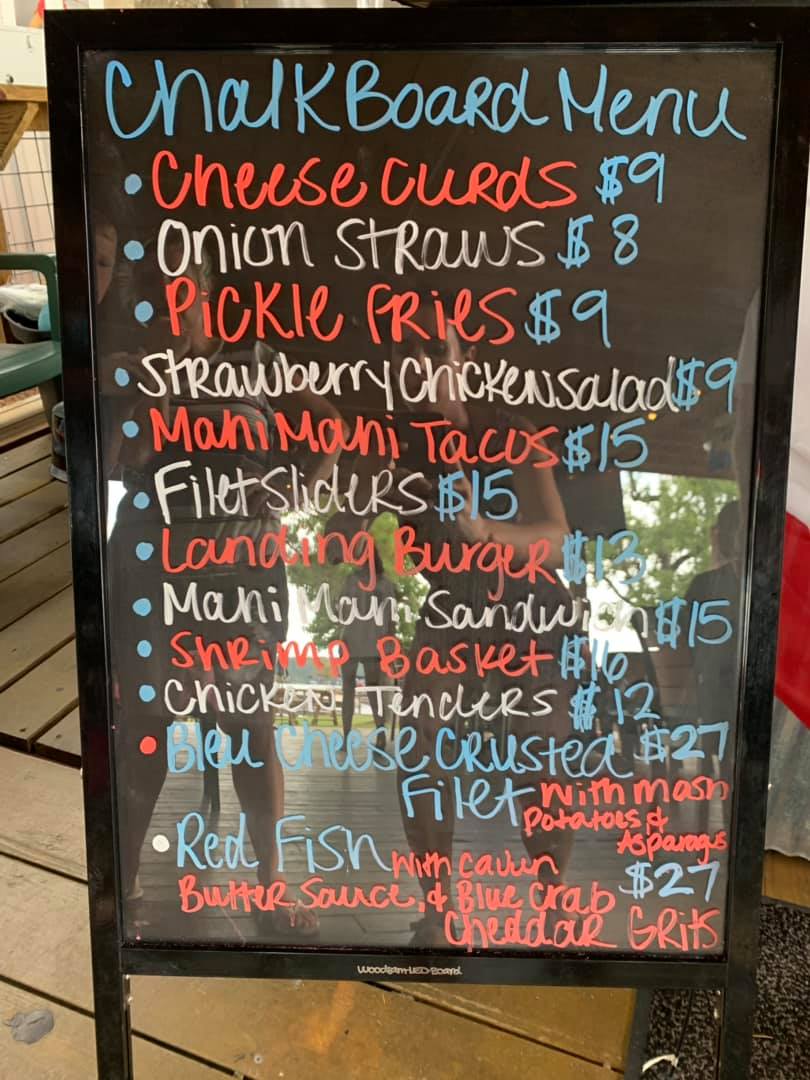 Chalk Board Menu
• Cheese Curds $9
• Onion Straws $8
• Pickle Fries $9
• Strawberry Chicken Salad $9
• Mahi Mahi Tacos $15
• Filet Sliders $15
• Landing Burger $13
• Mahi Mahi Sandwich $15
• Shrimp Basket $16
• Chicken Tenders $12
• Bleu Cheese Crusted $27
Filet with mash
Potatoes &
Asparagus
• Red Fish with Cajun $27
Butter Sauce, & Blue Crab
Cheddar Grits